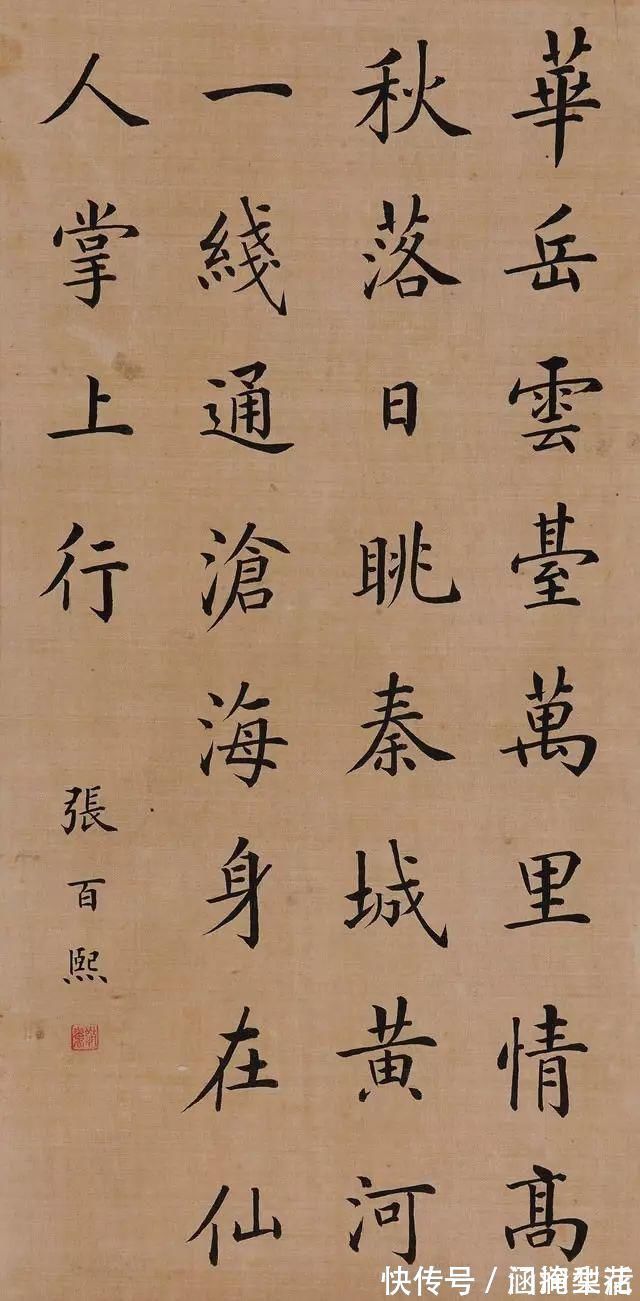 華岳雲臺萬里情髙
秋落日眺秦城黄河
一綫通滄海身在仙
人掌上行
張百熙
快传号 /